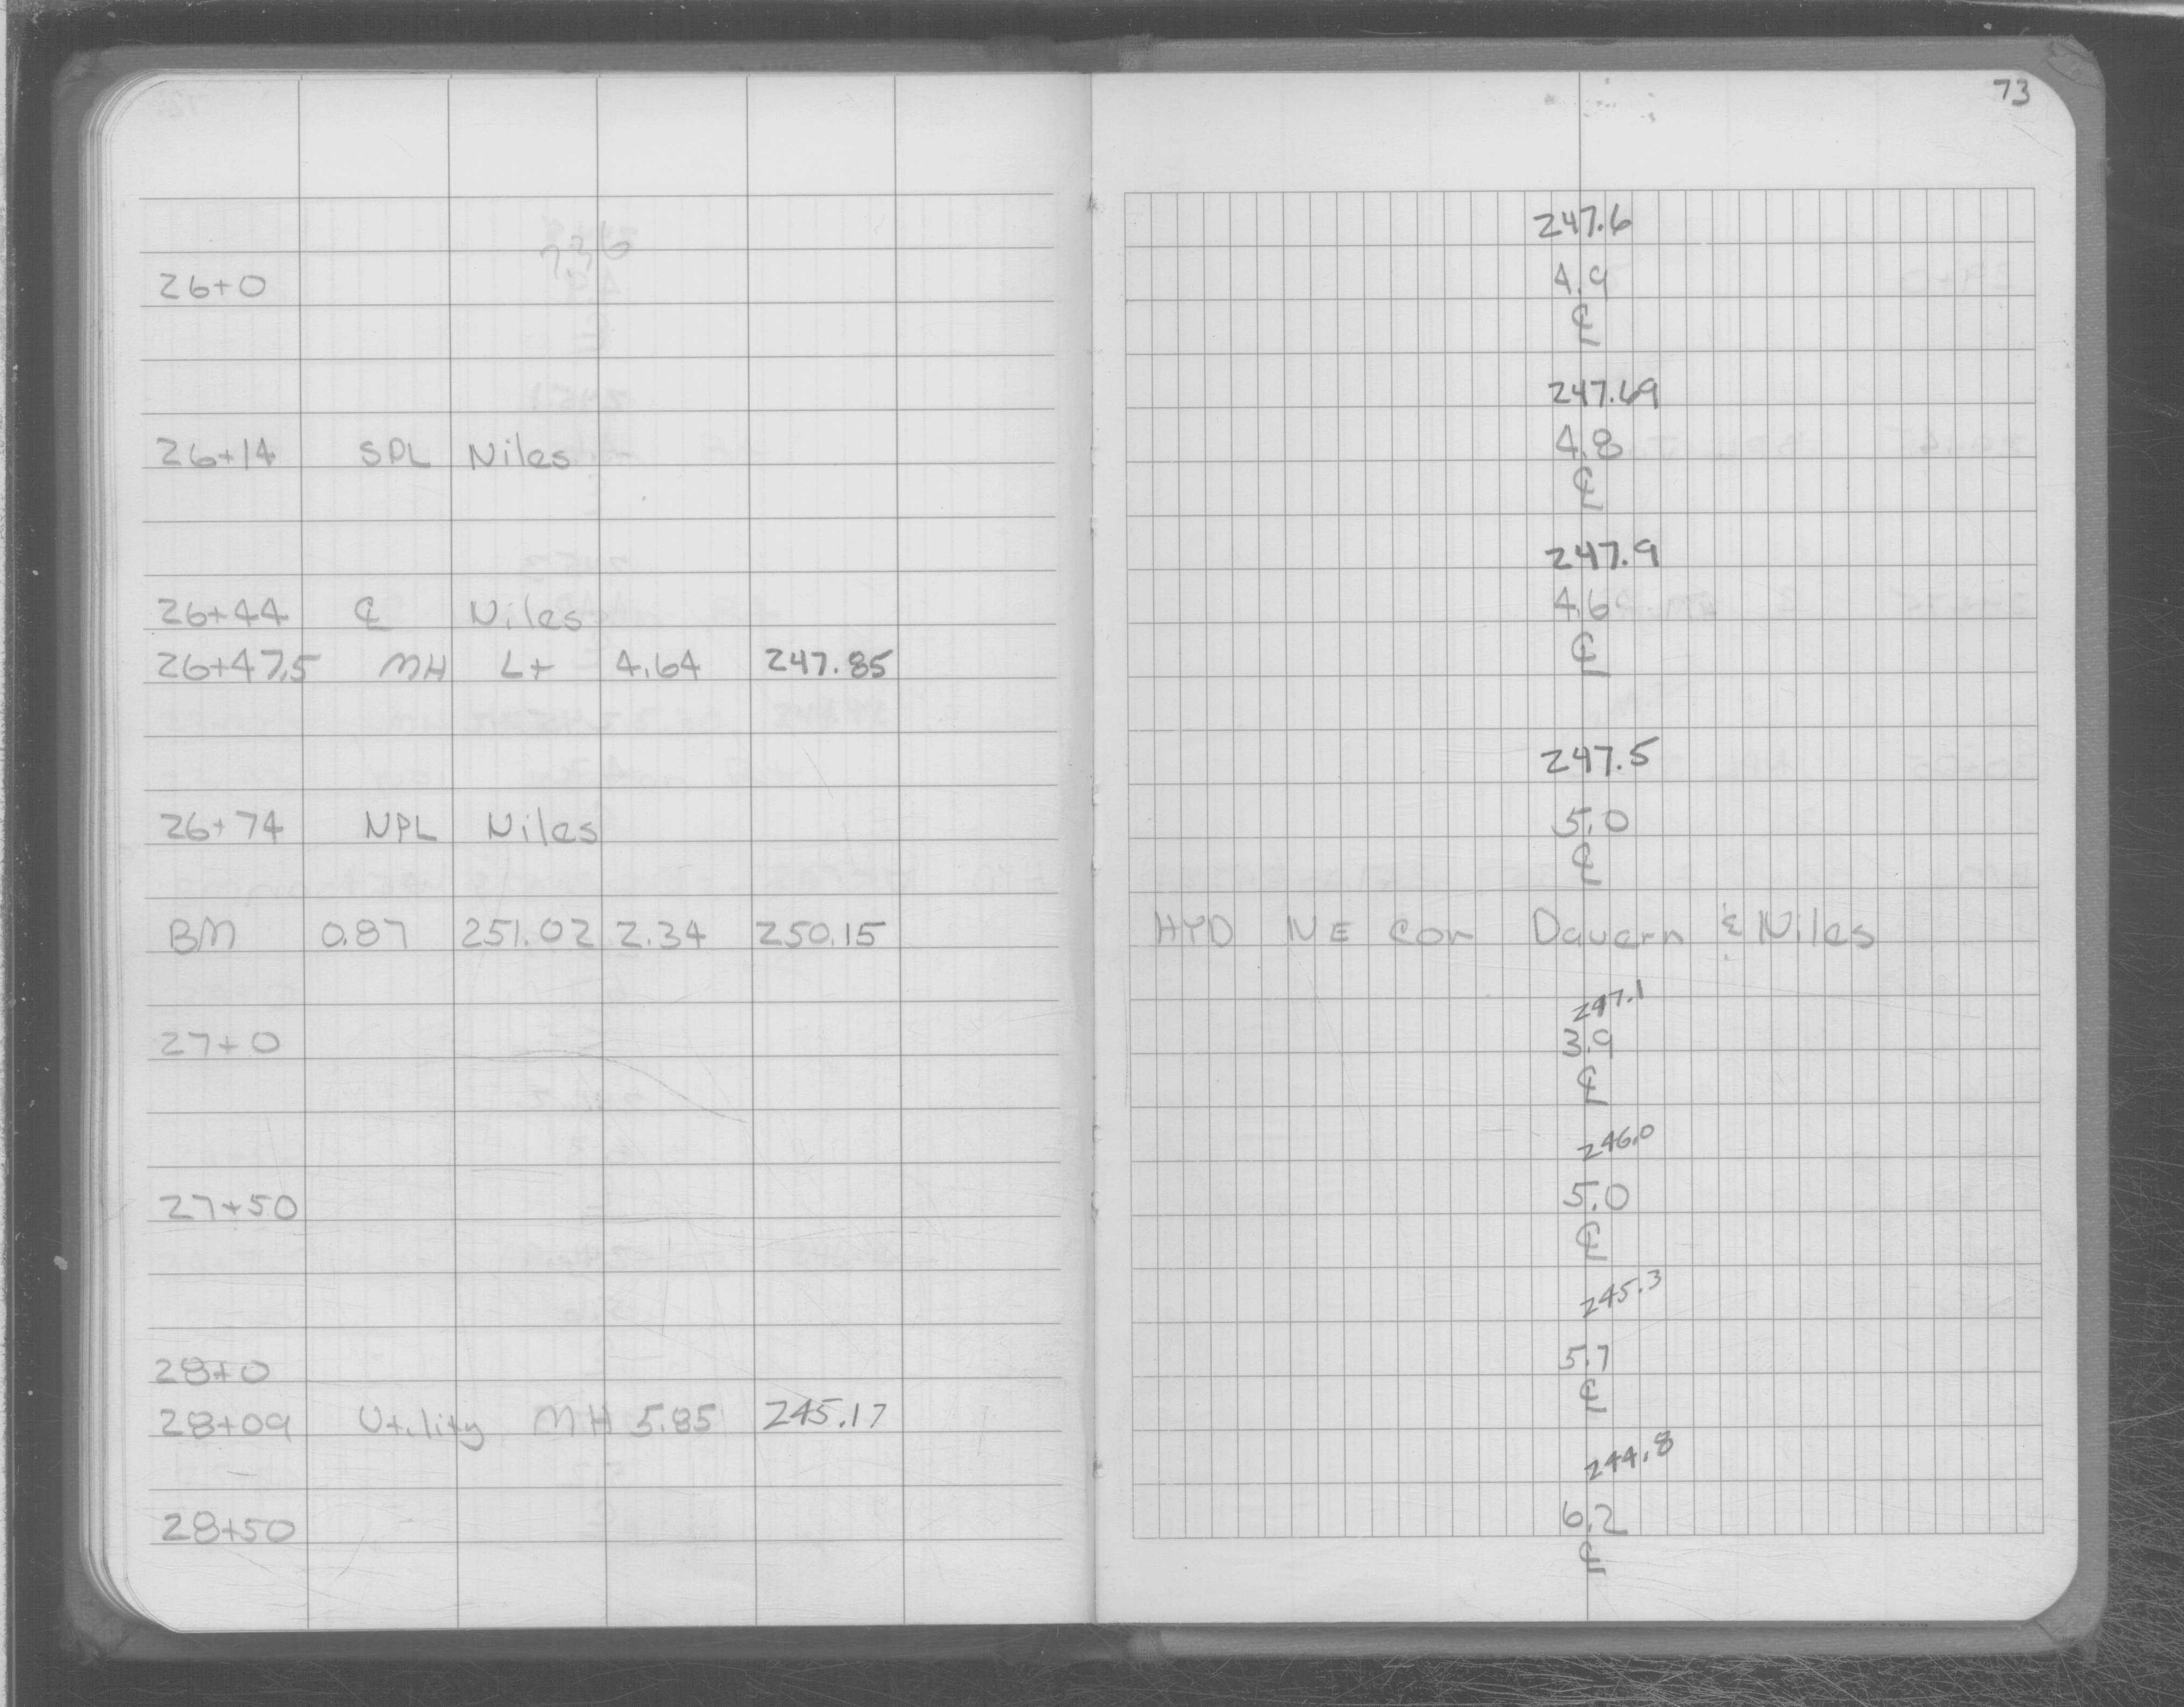 73
247.6
26+0 4.9
℄
247.69
26+14 SPL Niles 4.8
℄
247.9
26+44 ℄ Niles 4.6
26+47.5 MH Lt 4.64 247.85 ℄
247.5
26+74 NPL Niles 5.0
℄
BM 0.87 251.02 2.34 250.15 HYD NE Cor Davern & Niles
247.1
27+0 3.9
℄
246.0
27+50 5.0
℄
245.3
28+0 5.7
28+09 Utility MH 5.85 245.17 ℄
244.8
28+50 6.2
℄